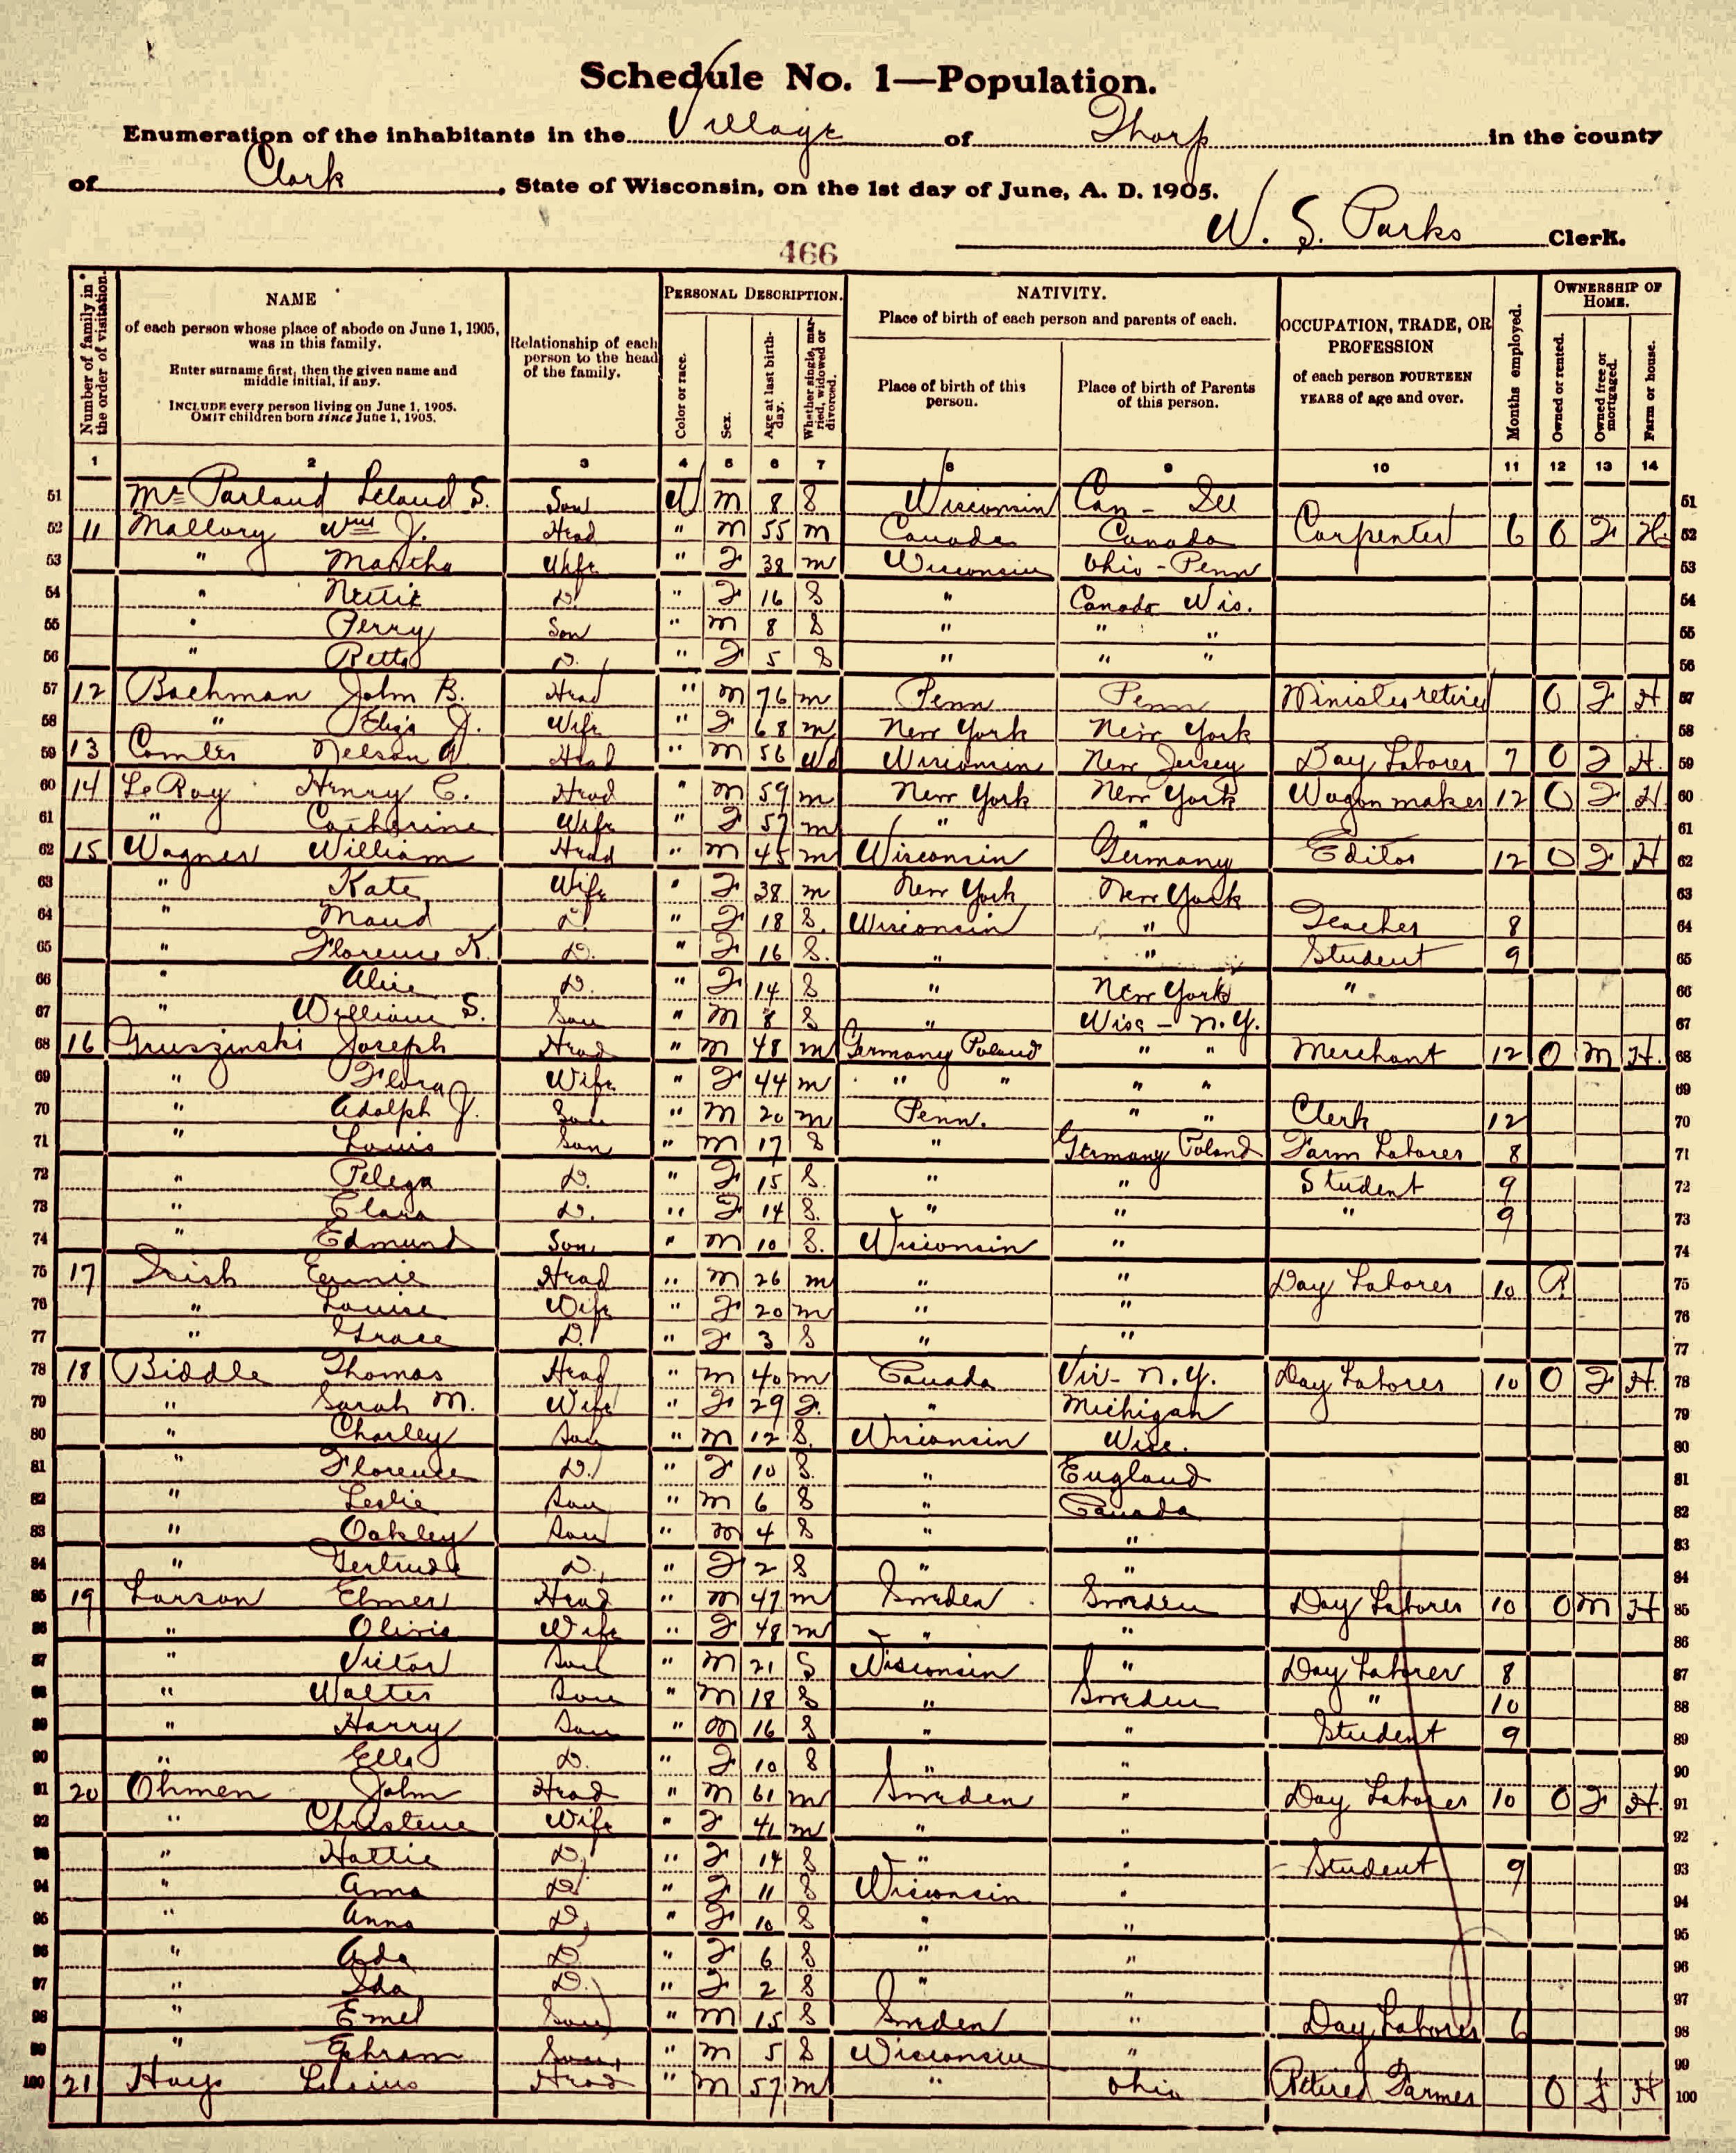 Schedule No. 1—Population.
Enumeration of the inhabitants in the Village of Thorp in the county
of Clark, State of Wisconsin, on the 1st day of June, A. D. 1905.
W. S. Parks Clerk.
466
Number of family in the order of visitation.
NAME
of each person whose place of abode on June 1, 1905, was in this family.
Enter surname first, then the given name and middle initial, if any.
INCLUDE every person living on June 1, 1905.
OMIT children born since June 1, 1905.
Relationship of each person to the head of the family.
PERSONAL DESCRIPTION.
Color or race.
Sex.
Age at last birth-day.
Whether single, mar-ried, widowed or divorced.
NATIVITY.
Place of birth of each person and parents of each.
Place of birth of this person.
Place of birth of Parents of this person.
OCCUPATION, TRADE, OR PROFESSION
of each person FOURTEEN YEARS of age and over.
Months employed.
OWNERSHIP OF HOME.
Owned or rented.
Owned free or mortgaged.
Farm or house.
1 2 3 4 5 6 7 8 9 10 11 12 13 14
51 Mc Parland Leland S. Son W m 8 S Wisconsin Can - Ill 51
52 11 Mallory Wm J. Head " m 55 m Canada Canada Carpenter 6 O F H. 52
53 " Martha Wife " F 38 m Wisconsin Ohio - Penn 53
54 " Nettie D. " F 16 S " Canada Wis. 54
55 " Perry Son " m 8 S " " " 55
56 " Retta D. " F 5 S " " " 56
57 12 Bachman John B. Head " m 76 m Penn Penn Minister retired O F H 57
58 " Eliza J. Wife " F 68 m New York New York 58
59 13 Nelson A. Head " m 56 Wd Wisconsin New Jersey Day Laborer 7 O F H. 59
60 14 LeRoy Henry C. Head " m 59 m New York New York Wagon maker 12 O F H 60
61 " Catherine Wife " F 57 m " " 61
62 15 Wagner William Head " m 45 m Wisconsin Germany Editor 12 O F H 62
63 " Kate Wife " F 38 m New York New York 63
64 " Maud D. " F 18 S. Wisconsin " Teacher 8 64
65 " Florence K. D. " F 16 S. " " Student 9 65
66 " Alice D. " F 14 S " New York " 66
67 " William S. Son " m 8 S " Wisc - N.Y. 67
68 16 Gruszinski Joseph Head " m 48 m Germany Poland " " Merchant 12 O m H. 68
69 " Flora Wife " F 44 m " " " " 69
70 " Adolph J. Son " m 20 m Penn. " " Clerk 12 70
71 " Louis Son " m 17 S " Germany Poland Farm Laborer 8 71
72 " Pelega D. " F 15 S. " " Student 9 72
73 " Clara D. " F 14 S. " " " 9 73
74 " Edmund Son " m 10 S. Wisconsin " 74
75 17 Irish Head " m 26 m " " Day Laborer 10 R 75
76 " Louise Wife " F 20 m " " 76
77 " Grace D. " F 3 S " " 77
78 18 Biddle Thomas Head " m 40 m Canada Vir- N.Y. Day Laborer 10 O F H. 78
79 " Sarah M. Wife " F 29 F. " Michigan 79
80 " Charley Son " m 12 S. Wisconsin Wisc. 80
81 " Florence D. " F 10 S. " England 81
82 " Leslie Son " m 6 S " Canada 82
83 " Oakley Son " m 4 S " " 83
84 " Gertrude D. " F 2 S " " 84
85 19 Larson Elmer Head " m 47 m Sweden Sweden Day Laborer 10 O m H 85
86 " Olivia Wife " F 48 m " " 86
87 " Victor Son " m 21 S Wisconsin " Day Laborer 8 87
88 " Walter Son " m 18 S " Sweden " 10 88
89 " Harry Son " m 16 S " " Student 9 89
90 " Ella D. " F 10 S " " 90
91 20 Ohmen John Head " m 61 m Sweden " Day Laborer 10 O F H. 91
92 " Christene Wife " F 41 m " " 92
93 " Hattie D. " F 14 S " " Student 9 93
94 " Ama D. " F 11 S Wisconsin " 94
95 " Anna D. " F 10 S " " 95
96 " Ada D. " F 6 S " " 96
97 " Ida D. " F 2 S " " 97
98 " Emel Son " m 15 S Sweden " Day Laborer 6 98
99 " Ephram Son " m 5 S Wisconsin " 99
100 21 Hays Head " m 57 m " Ohio Retired Farmer O H 100